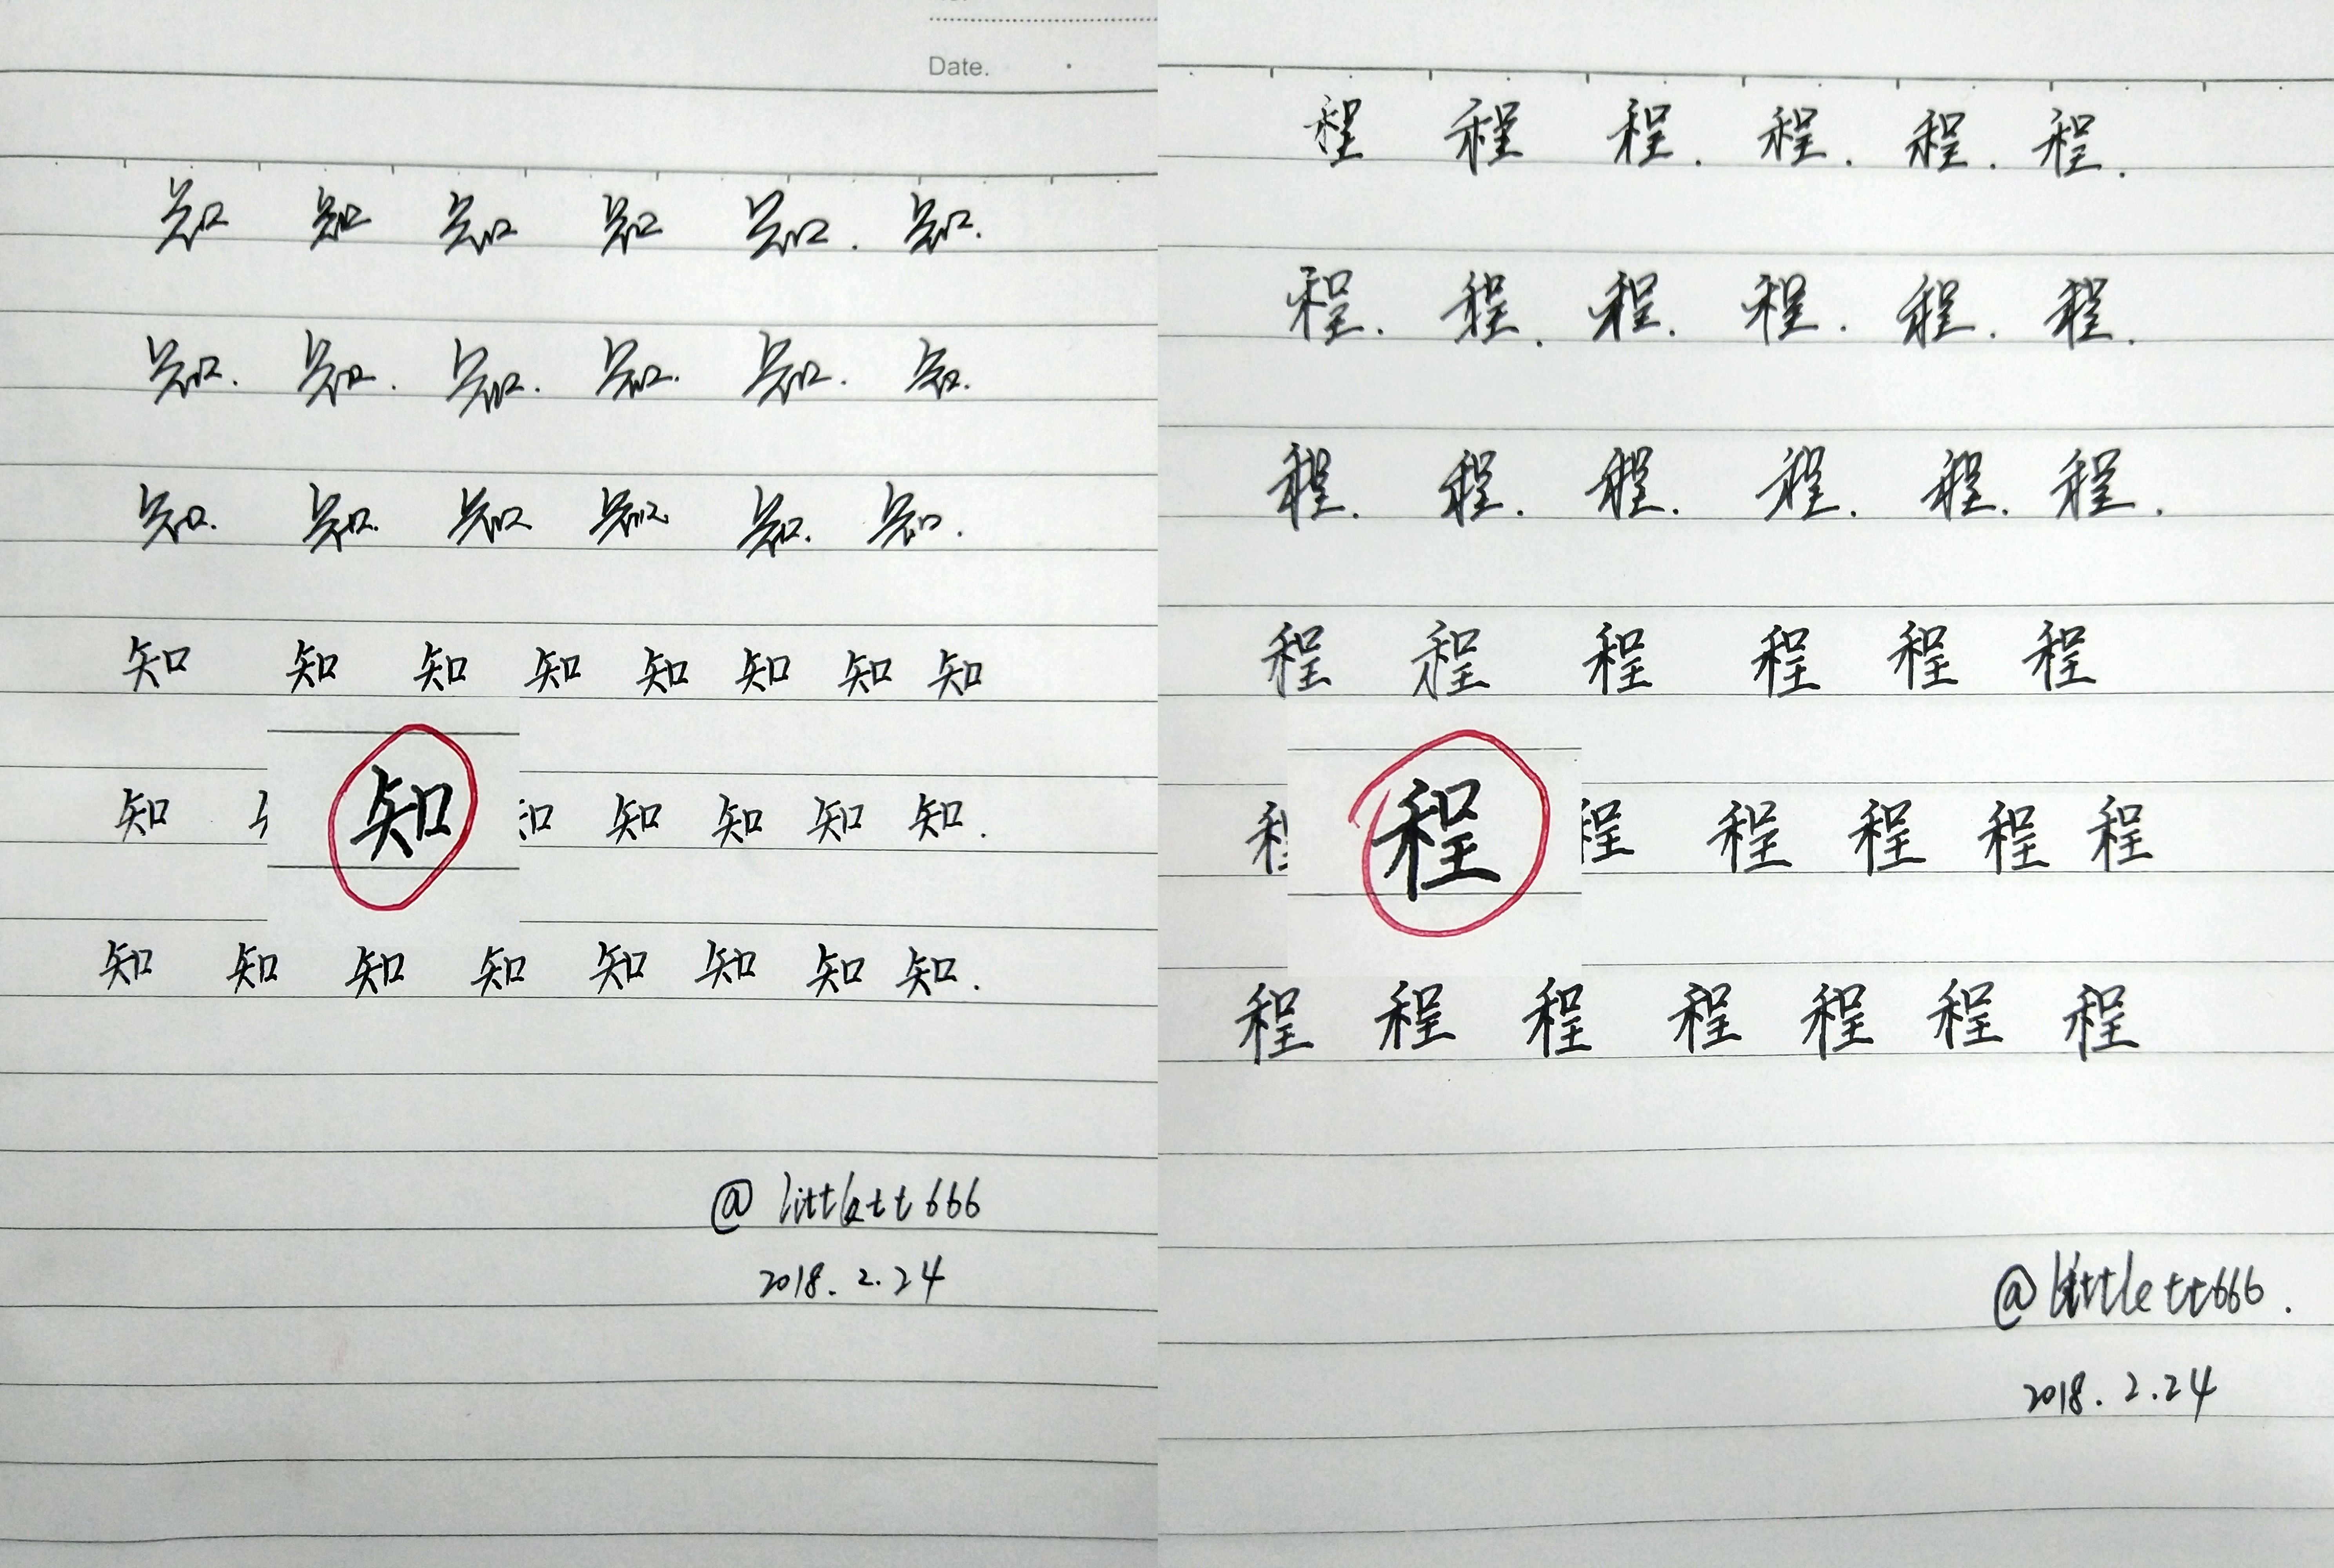 Date.
知 知 知 知 知. 知.
知. 知. 知. 知. 知. 知.
知. 知. 知 知. 知. 知.
知 知 知 知 知 知 知 知
知 知 知 知 知 知.
知 知 知 知 知 知 知 知.
@littlett666
2018.2.24
程 程 程. 程. 程. 程.
程. 程. 程. 程. 程. 程.
程. 程. 程. 程. 程. 程.
程 程 程 程 程 程
程 程 程 程 程 程
程 程 程 程 程 程 程
@littlett666.
2018.2.24